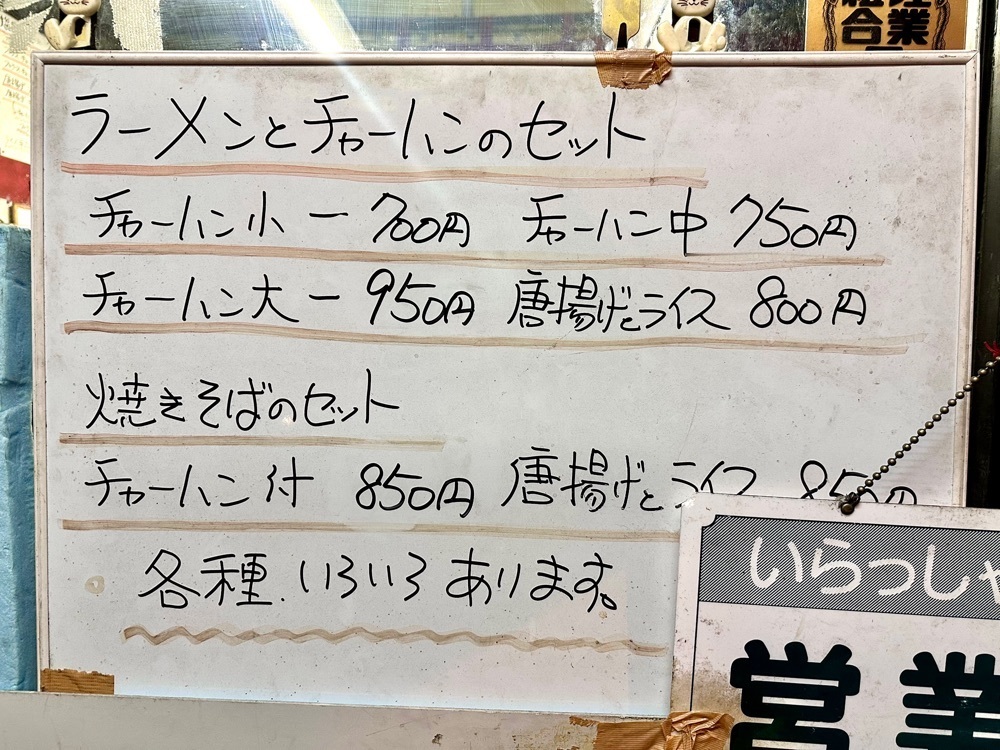 ラーメンとチャーハンのセット
チャーハン小ー700円 チャーハン中 750円
チャーハン大ー950円 唐揚げとライス 800円
焼きそばのセット
チャーハン付 850円 唐揚げとライス 850円
各種.いろいろあります。
いらっしゃ
営業